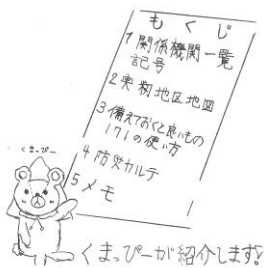 もくじ
1 関係機関一覧
記号
2 実籾地区地図
3 備えておくと良いもの
171の使い方
4 防災カルテ
5 メモ
くまっぴー
くまっぴーが紹介します!